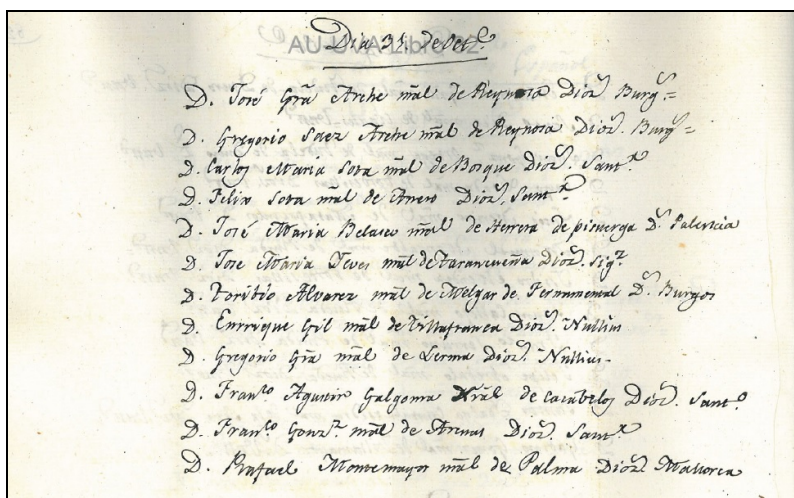 Dia 31. de Oct.e
AU-UVA Libro
D. José Gra Arche ntãl de Reynosa Dioz. Burgs =
D. Gregorio Saez Arche ntãl de Reynosa Dioz. Burgs =
D. Carlos Maria Sota ntãl de Bosque Dioz. Sant.r
D. Felix Sota ntãl de Anero Dioz. Sant.r
D. José Maria Belasco ntãl de Herrera de pisuerga Ds. Palencia
D. Jose Maria Yeves ntãl de Tarancueña Dioz. Sigz.
D. Toribio Alvarez ntãl de Melgar de Fernamental Ds. Burgos
D. Enrrique Gil ntãl de Villafranca Dioz. Nullius
D. Gregorio Gra ntãl de Lerma Dioz. Nullius
D. Fran.co Galgoma ntãl de cacabelos Dioz.
D. Fran.co Gonz.z ntãl de Arenas Dioz. Sant.r
D. Rafael Montemayor ntãl de Palma Dioz. Mallorca